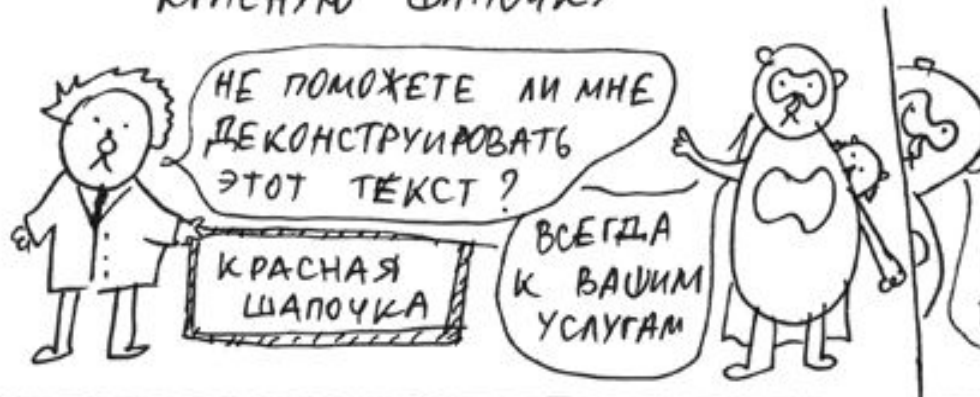 КРАСНУЮ ШАПОЧКУ
НЕ ПОМОЖЕТЕ ЛИ МНЕ
ДЕКОНСТРУИРОВАТЬ
ЭТОТ ТЕКСТ?
КРАСНАЯ
ШАПОЧКА
ВСЕГДА
К ВАШИМ
УСЛУГАМ